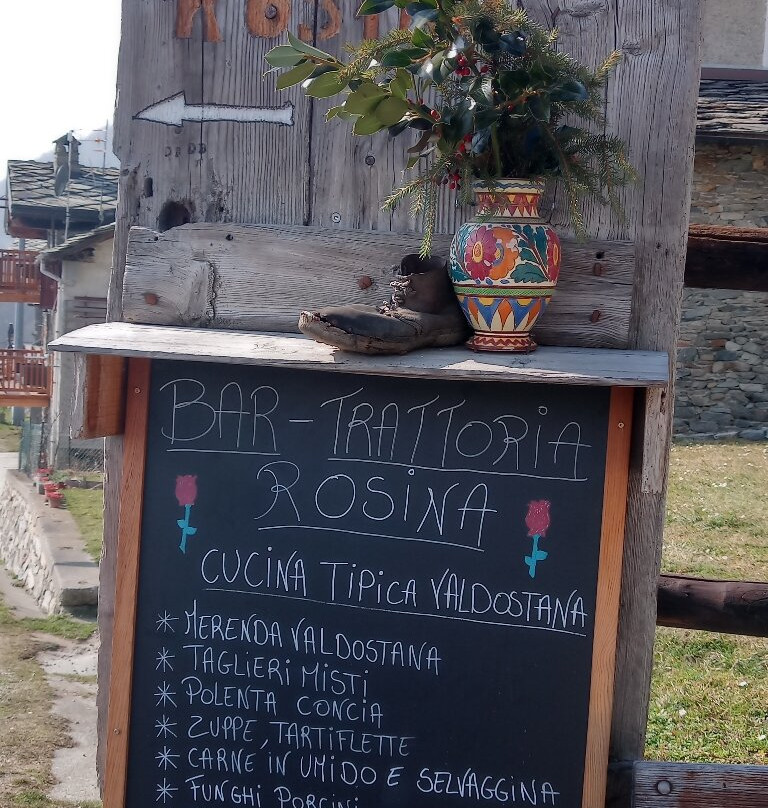 BAR - TRATTORIA
ROSINA
CUCINA TIPICA VALDOSTANA
* MERENDA VALDOSTANA
* TAGLIERI MISTI
* POLENTA CONCIA
* ZUPPE, TARTIFLETTE
* CARNE IN UMIDO E SELVAGGINA
* FUNGHI PORCINI